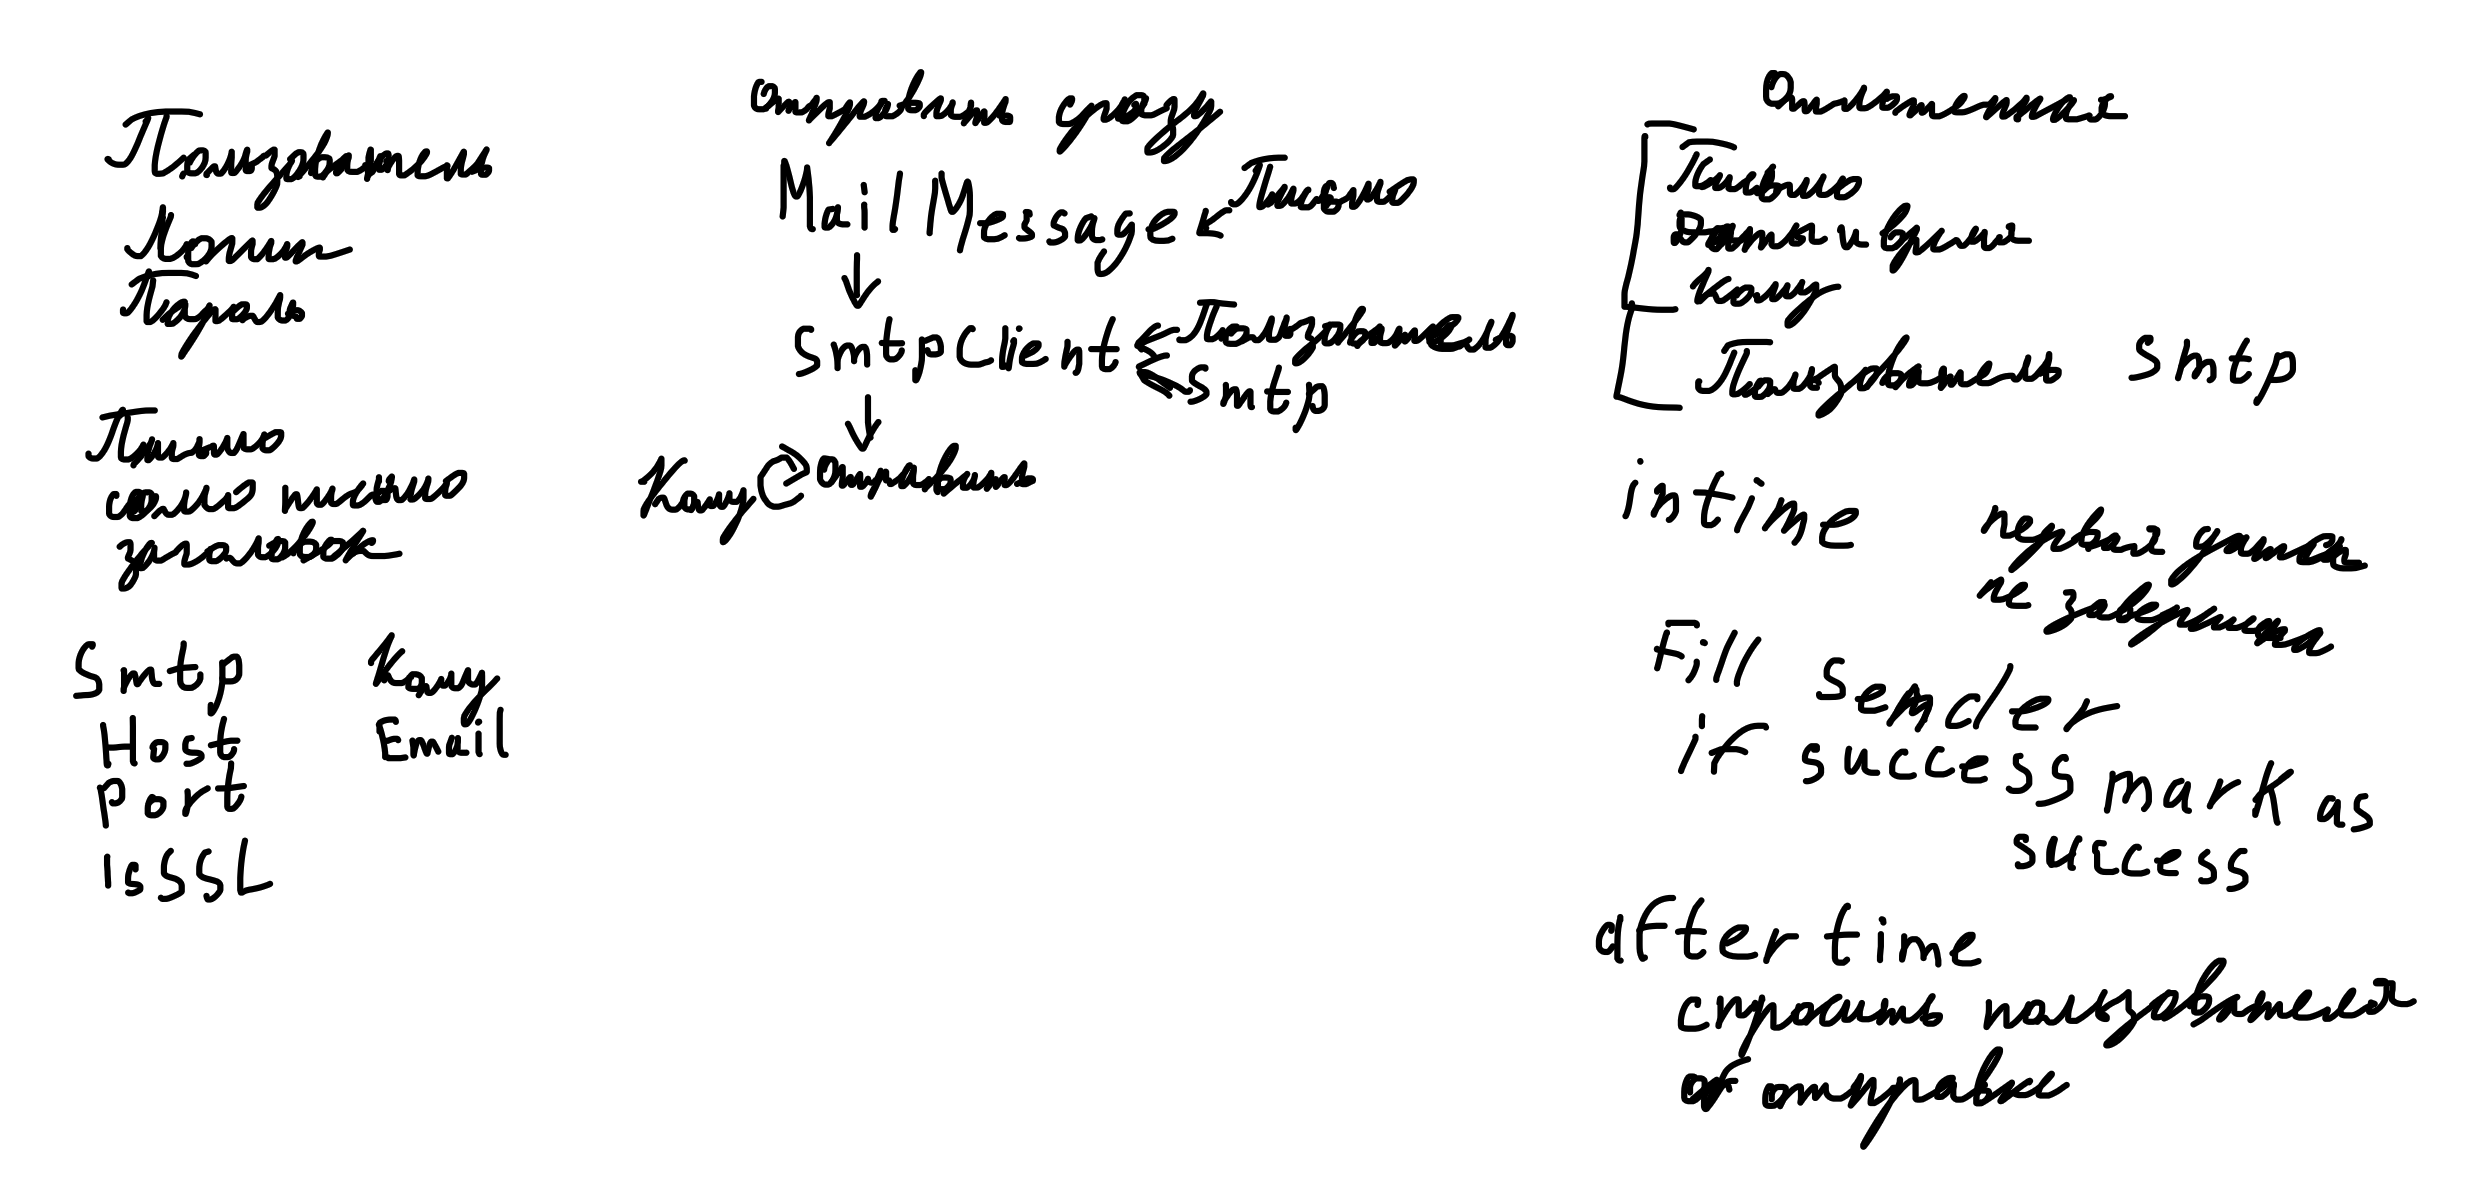 Пользователь
Логин
Пароль
Письмо
само письмо
заголовок
Smtp
Host
Port
isSSL
Кому
Email
Отправить сразу
Письмо
MailMessage
Пользователь
SmtpClient
Smtp
Кому
Отправить
Отложенная
Письмо
Дата и время
Кому
Пользователь Smtp
in time
первая дата
не завершена
Fill
Sender
if success mark as
success
after time
спросить пользователя
об отправке